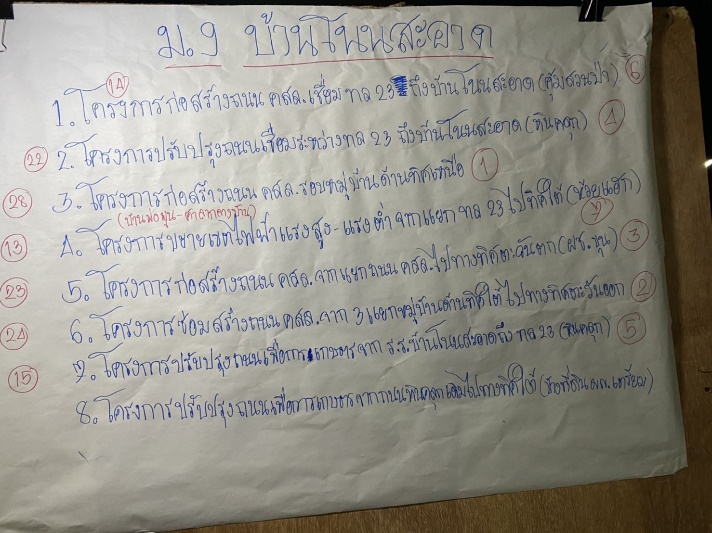 ม.9 บ้านโนนสะอาด
14
1. โครงการก่อสร้างถนน คสล. เชื่อม ทล 23 ถึงบ้านโนนสะอาด (คุ้มสวนป่า) 6
22 2. โครงการปรับปรุงถนนเชื่อมระหว่างทล 23 ถึงบ้านโนนสะอาด (หินคลุก) 4
28 3. โครงการก่อสร้างถนน คสล. รอบหมู่บ้านด้านทิศเหนือ 1
(บ้านพ่อพูน-ศาลากลางบ้าน)
13 4. โครงการขยายเขตไฟฟ้าแรงสูง-แรงต่ำ จากแยก ทล 23 ไปทิศใต้ 7
23 5. โครงการก่อสร้างถนน คสล. จากแยกถนน คสล. ไปทางทิศตะวันตก (ผช.ขุน) 3
24 6. โครงการซ้อมสร้างถนน คสล. จาก 3 แยกหมู่บ้านด้านทิศใต้ ไปทางทิศตะวันออก 2
15 7. โครงการปรับปรุงถนนเพื่อการเกษตร จาก ร.ร.บ้านโนนสะอาดถึง ทล 23 (หินคลุก) 5
8. โครงการปรับปรุงถนนเพื่อการเกษตรจากถนนหินคลุกเดิมไปทางทิศใต้